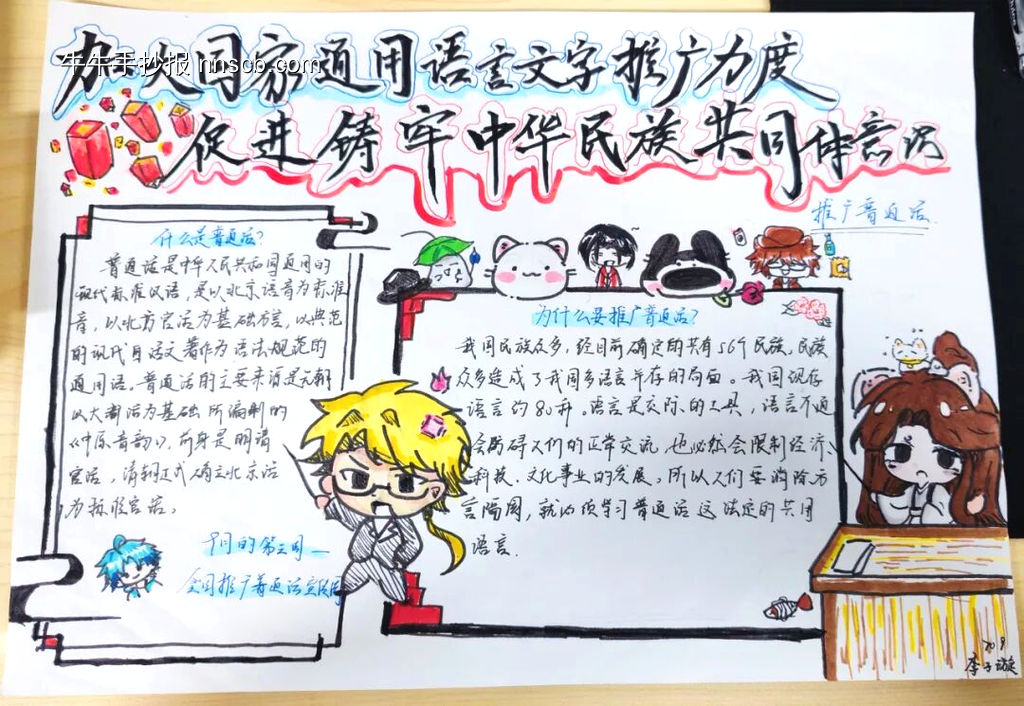 加大国家通用语言文字推广力度
牛牛手抄报 nnscb.com
促进铸牢中华民族共同体意识
推广普通话
什么是普通话?
普通话是中华人民共和国通用的
现代标准汉语,是以北京语音为标准
音,以北方官话为基础方言,以典范
的现代白话文著作为语法规范的
通用语。普通话的主要来源是元朝
以大都话为基础所编制的
《中原音韵》,前身是明清
官话,清朝正式确立北京话
为标准官话。
9月的第三周—
全国推广普通话宣传周
为什么要推广普通话?
我国民族众多,经目前确定的共有56个民族,民族
众多造成了我国多语言并存的局面。我国现存
语言约80种。语言是交际的工具,语言不通
会妨碍人们的正常交流,也必然会限制经济、
科技、文化事业的发展,所以人们要消除方
言隔阂,就必须学习普通话这法定的共同
语言.
李子璇